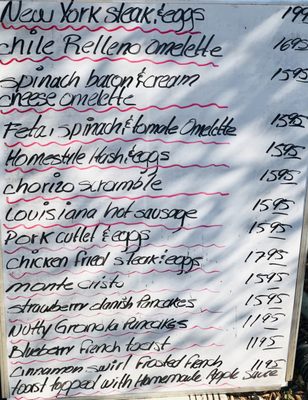 New York steak & eggs 19
chile Relleno omelette 1695
spinach bacon & cream 1595
cheese omelette
Feta, spinach & tomato Omelette 1595
Homestyle Hash & eggs 1595
chorizo scramble 1595
Louisiana hot sausage 1595
Pork cutlet & eggs 1595
chicken fried steak & eggs 1795
monte cristo 1595
strawberry danish Pancakes 1595
Nutty Granola Pancakes 1195
Blueberry French toast 1195
cinnamon swirl Frosted French 1195
toast topped with Homemade Apple Sauce